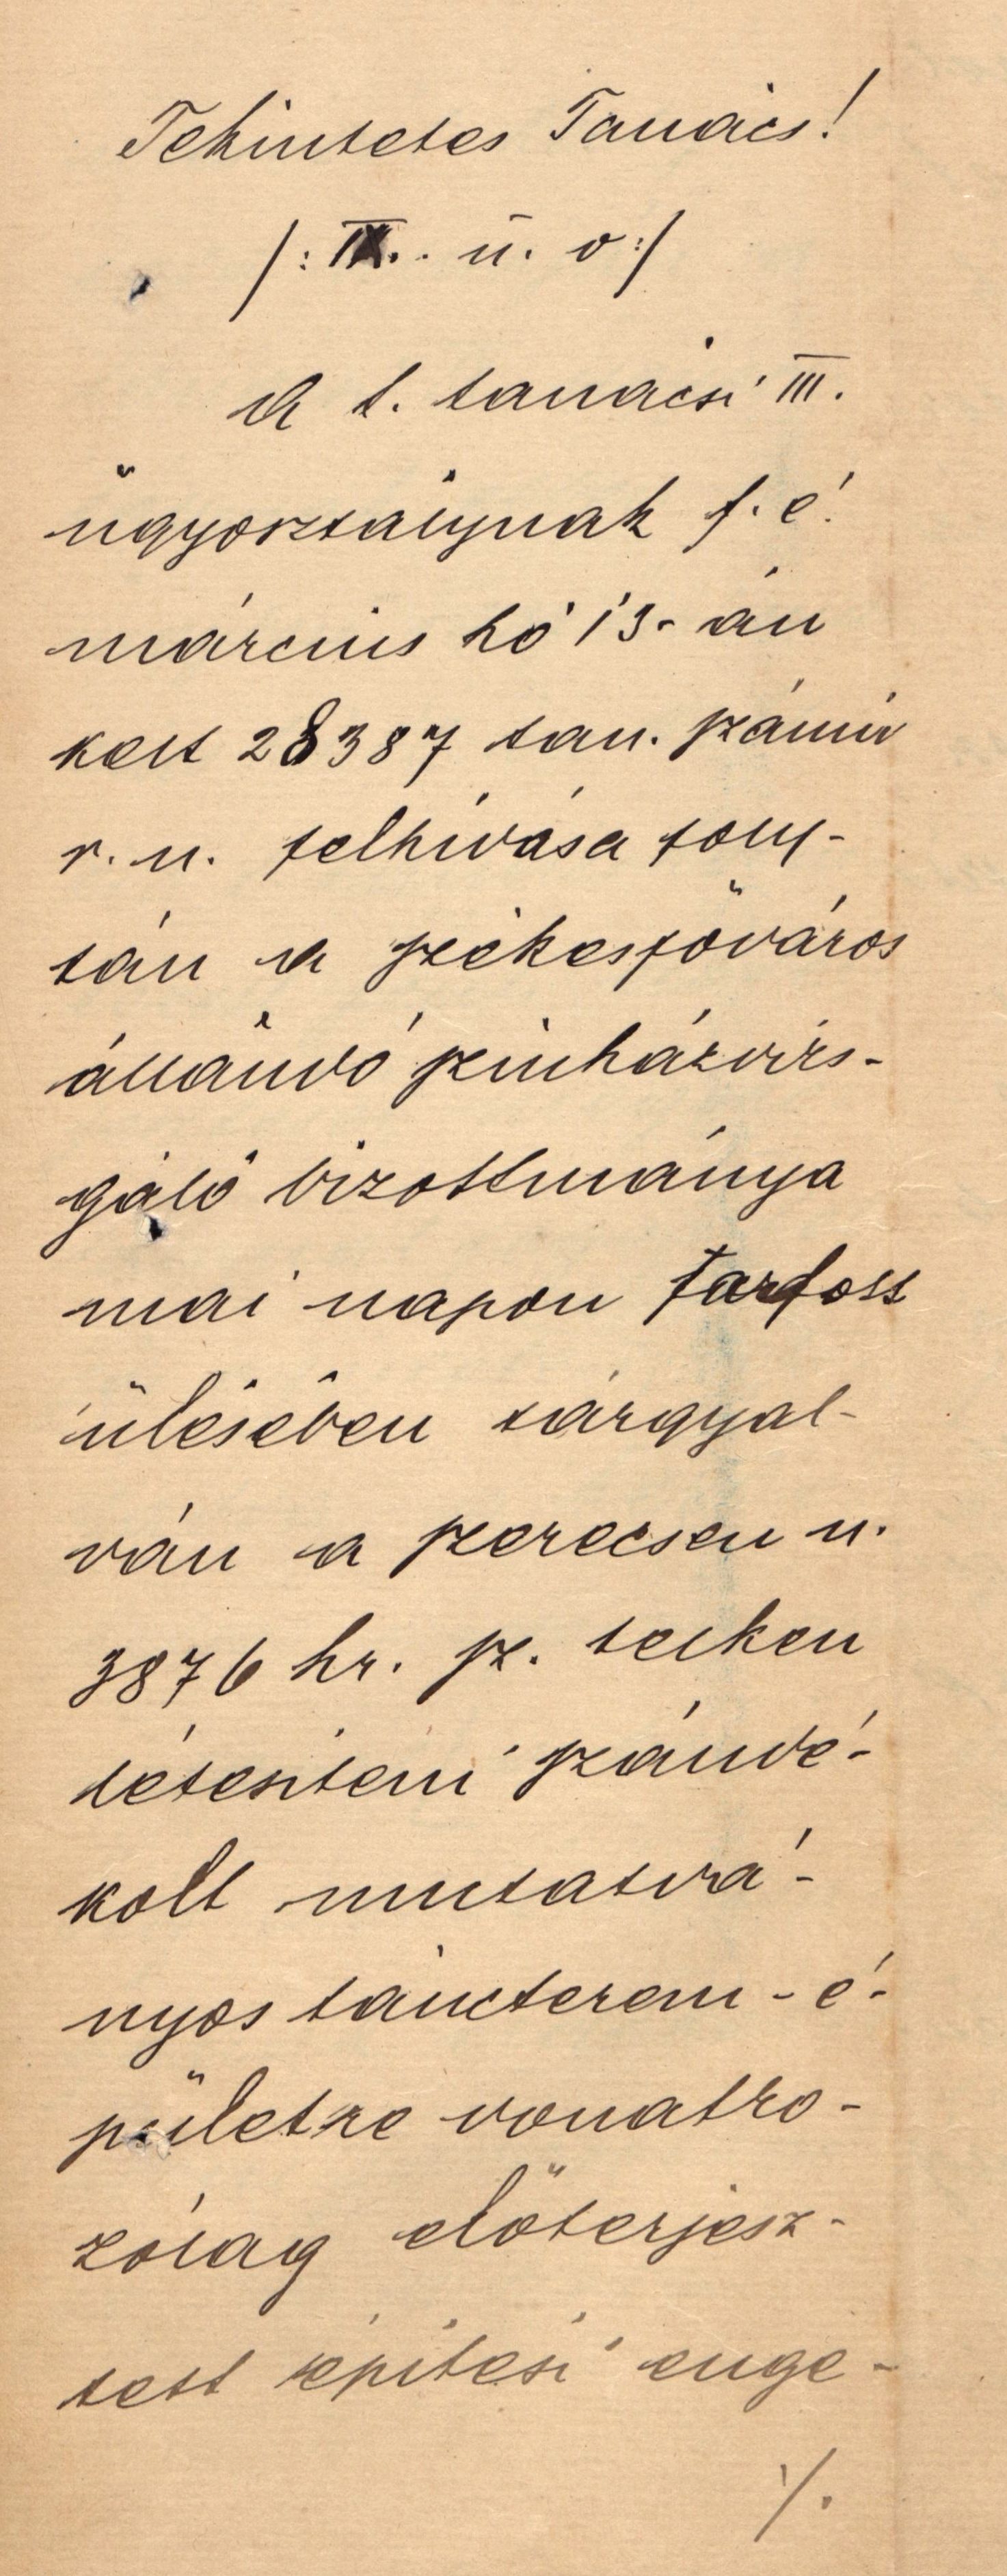 Tekintetes Tanács!
/: IX. ü. o :/
A t. tanácsi III.
ügyosztálynak f. é.
március hó 13-án
kelt 28387 tan. számú
r. n. felhívása foly-
tán a székesfőváros
állandó szinházvizs-
gáló bizottmánya
mai napon tartott
ülésében tárgyal-
ván a szerecsen u.
3876 hr. sz. telken
létesiteni szándé-
kolt mutatvá-
nyos táncterem-é-
pületre vonatko-
zólag előterjesz-
tett épitési enge-
/.